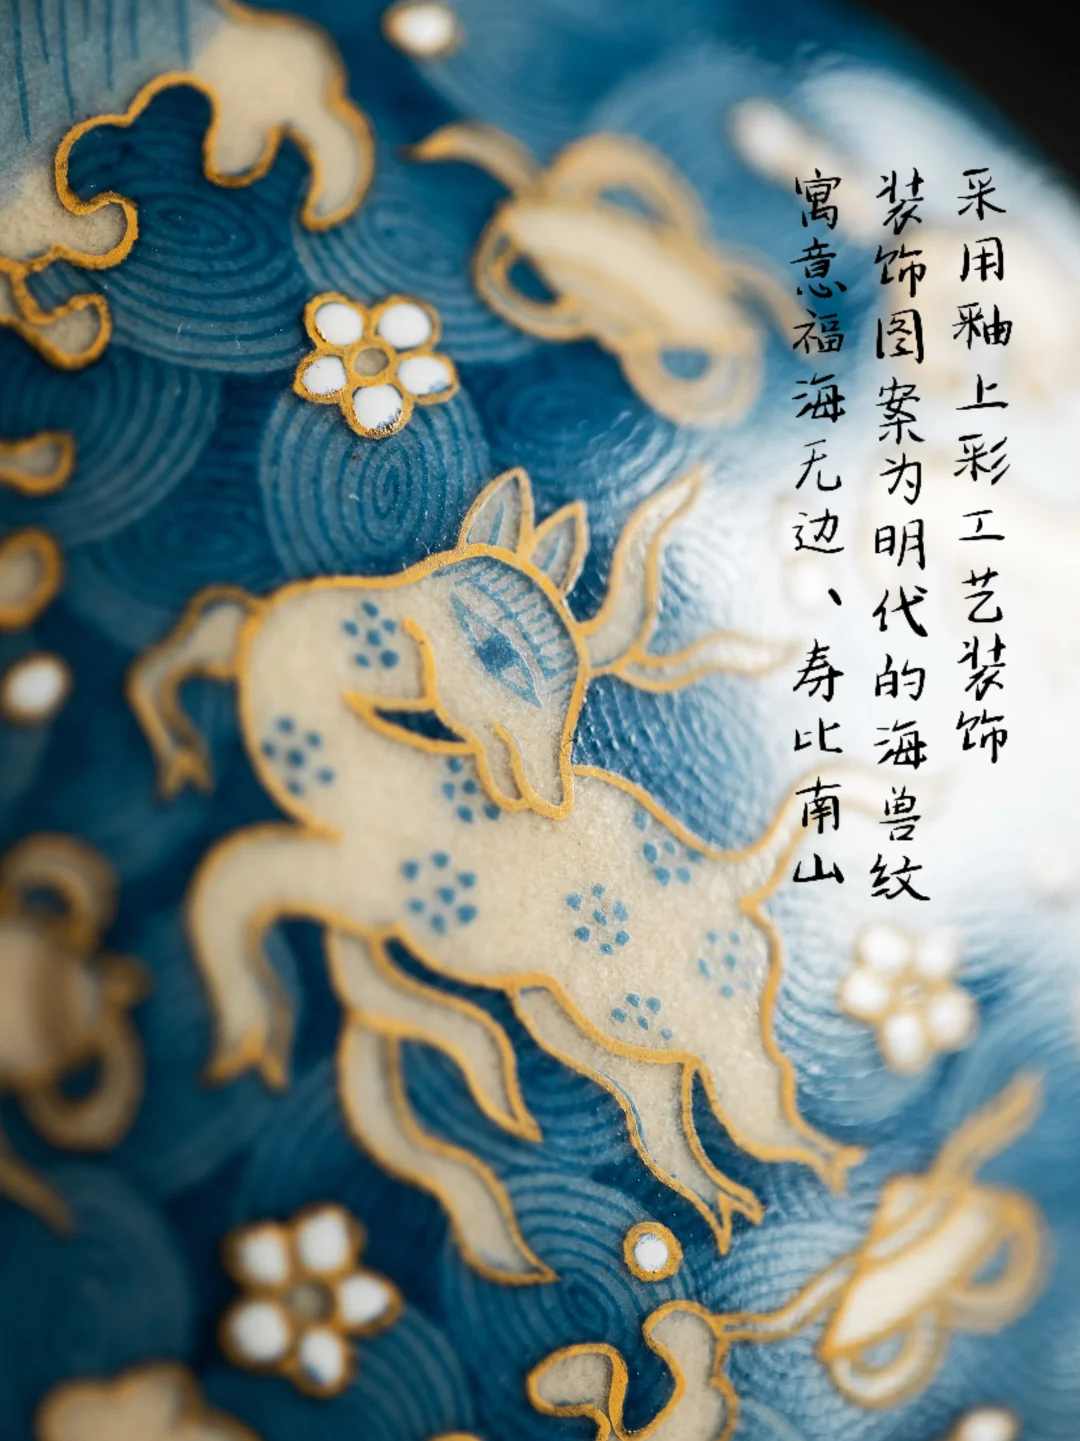 采用釉上彩工艺装饰
装饰图案为明代的海兽纹
寓意福海无边、寿比南山